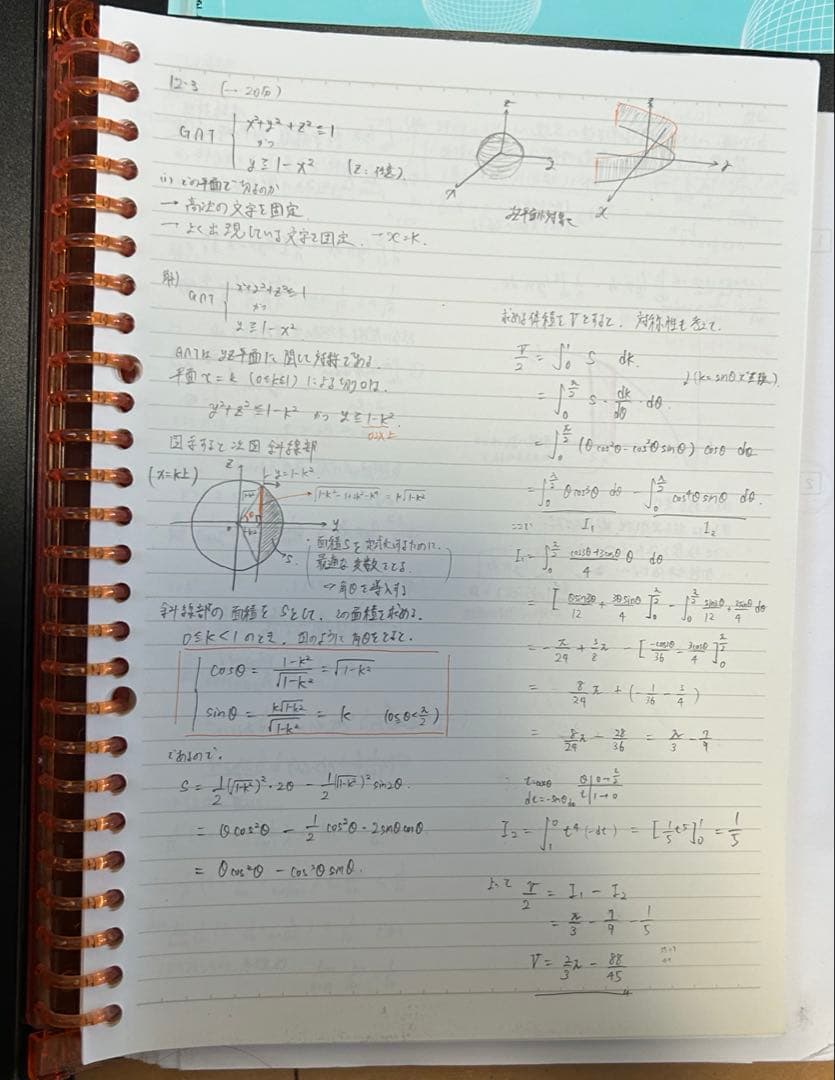 12-3 (→20分)
G∩T { x²+y²+z²≦1
かつ
y≧1-x² (z:任意)
z
y
x
z
y
x
(i) どの平面で切るのか
→ 高次の文字を固定
→ よく出現している文字を固定. → x=k.
解)
G∩T { x²+y²+z²≦1
かつ
y≧1-x²
G∩Tは yz平面に関して対称である.
平面 x=k (0≦k≦1) による切り口は.
y²+z²≦1-k² かつ y≧1-k²
0以上
図示すると次図斜線部
(x=k上)
z
y=1-k²
√1-k²-1+2k²-k⁴ = k√1-k²
y
S
面積Sを立式するために.
最適な変数をとる
⇒ 角θを導入する
斜線部の面積をSとして, この面積を求める.
0≦k<1のとき. 図のように角θをとると.
cosθ = 1-k²/√1-k² = √1-k²
sinθ = k√1-k²/√1-k² = k (0≦θ<π/2)
であるので.
S = 1/2(√1-k²)²・2θ - 1/2(√1-k²)² sin2θ
= θcos²θ - 1/2 cos²θ・2sinθcosθ
= θcos²θ - cos³θsinθ.
求める体積をVとすると. 対称性も考えて.
V/2 = ∫₀¹ S dk
(k=sinθで変数)
= ∫₀^{π/2} S・dk/dθ・dθ
= ∫₀^{π/2} (θcos²θ-cos³θsinθ) cosθ dθ
= ∫₀^{π/2} θcos³θ dθ - ∫₀^{π/2} cos⁴θsinθ dθ.
ここで I₁ I₂
I₁ = ∫₀^{π/2} cos3θ+3cosθ/4 θ dθ
= [θsin3θ/12 + 3θsinθ/4]₀^{π/2} - ∫₀^{π/2} sin3θ/12 + 3sinθ/4 dθ
= -π/24 + 3/8π - [-cos3θ/36 - 3cosθ/4]₀^{π/2}
= 8/24π + (-1/36 - 3/4)
= 8/24π - 28/36 = π/3 - 7/9
t=cosθ θ|0→π/2
dt=-sinθdθ t|1→0
I₂ = ∫₁⁰ t⁴(-dt) = [1/5t⁵]₀¹ = 1/5
よって V/2 = I₁ - I₂
= π/3 - 7/9 - 1/5
V = 2/3π - 88/45